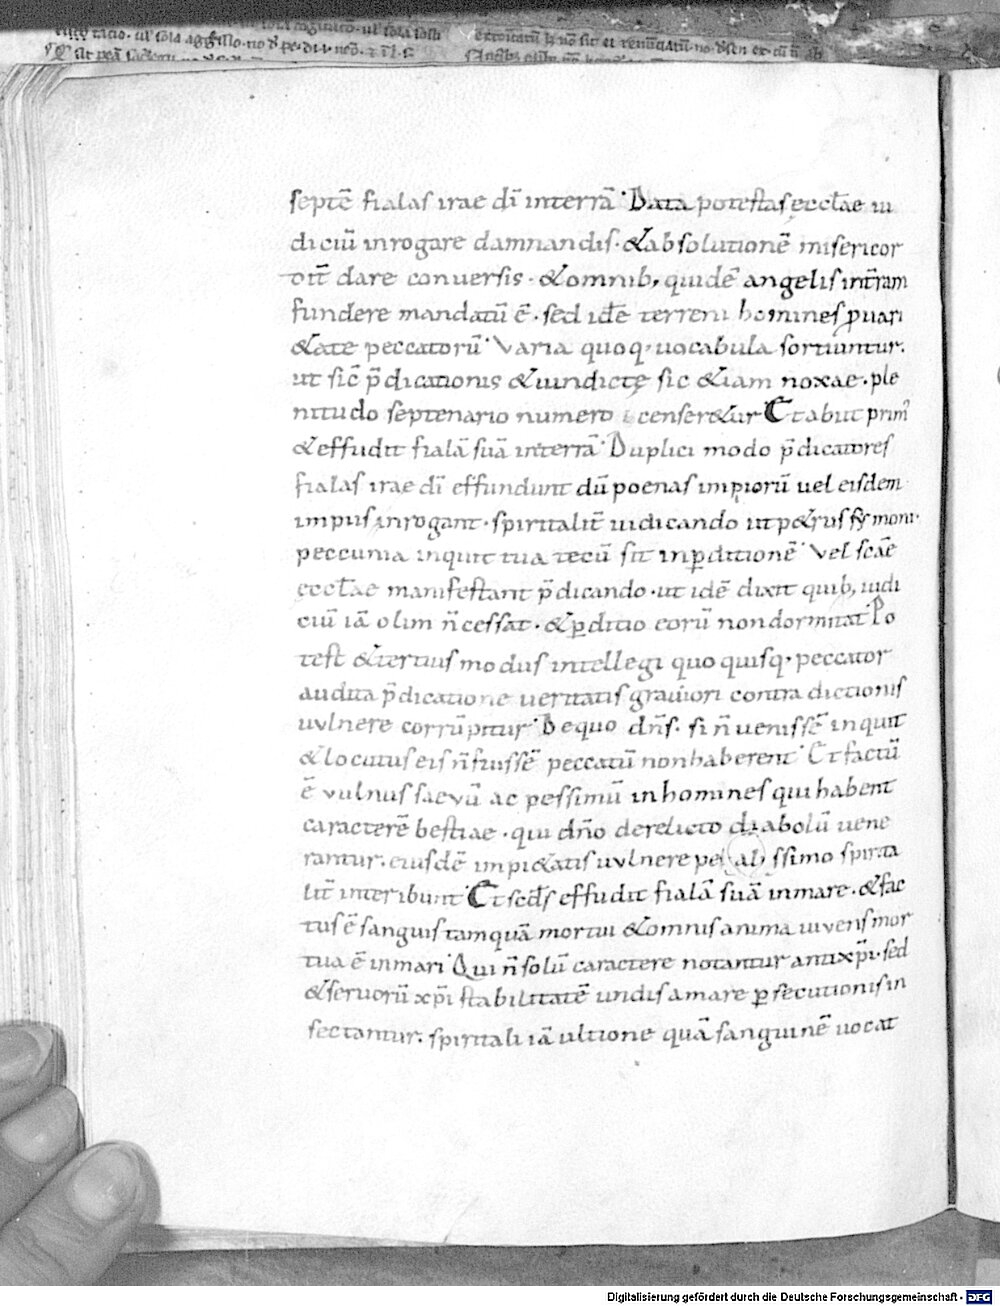 septē fialas irae dī interrā Data potestas eccłae iu
diciū inrogare damnandis · &absolutionē misericor
dit̄ dare conuersis · &omnib; quidē angelis int̄ram
fundere mandatū ē · sed idē terreni homines ꝑuari
&ate peccatorū Varia quoq; uocabula sortiuntur.
ut sic̄ p̄dicationis &uindictę sic &iam noxae · ple
nitudo septenario numero censer&ur Et abiit prim᾽
&effudit fialā suā interrā Duplici modo p̄dicatores
fialas irae dī effundunt dū poenas impiorū uel eisdem
impiis inrogant · spiritalit̄ iudicando ut p&rus symoni·
peccunia inquit tua tecū sit inꝑditionē Vel scāe
eccłae manifestant p̄dicando · ut idē dixit quib; iudi
ciū iā olim n̄cessat · &ꝑditio eorū nondormitat Po
test &tertius modus intellegi quo quisq; peccator
audita p̄dicatione ueritatis grauiori contra dictionis
uulnere corrūpitur De quo dn̄s · si n̄ uenissē inquit
&locutus eis n̄fuissē peccatū nonhaberent Et factū
ē vulnus saevū ac pessimū inhomines qui habent
caracterē bestiae · qui dn̄o derelicto diabolū uene
rantur · eiusdē impi&atis uulnere pessimo spirita
lit̄ interibunt Et secd̄s effudit fialā suā inmare · &fac
tus ē sanguis tamquā mortui &omnis anima uivens mor
tua ē inmari Qui n̄solū caractere notantur antixp̄i · sed
&seruorū xp̄i stabilitatē undis amare ꝑsecutionis in
sectantur · spiritali iā ultione quā sanguinē uocat
Digitalisierung gefördert durch die Deutsche Forschungsgemeinschaft - DFG